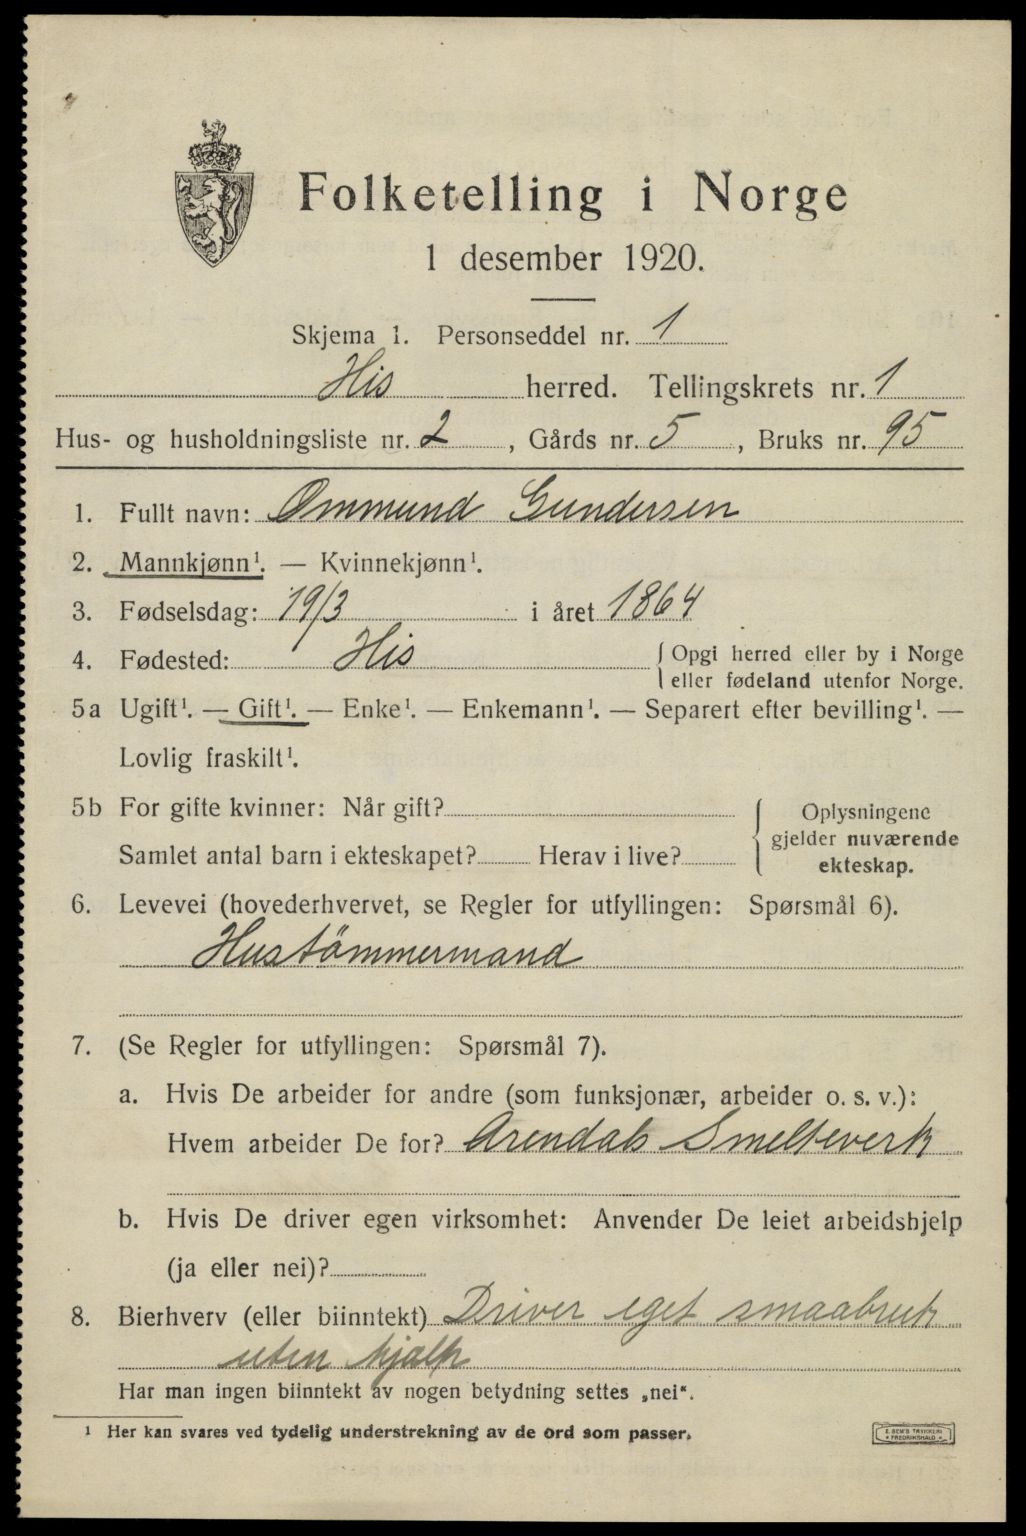 Folketelling i Norge
1 desember 1920.
Skjema 1. Personseddel nr. 1
His herred. Tellingskrets nr. 1
Hus- og husholdningsliste nr. 2, Gårds nr. 5, Bruks nr. 95
1. Fullt navn: Ommund Gundersen
2. Mannkjønn¹. — Kvinnekjønn¹.
3. Fødselsdag: 19/3 i året 1864
4. Fødested: His { Opgi herred eller by i Norge
eller fødeland utenfor Norge.
5a Ugift¹. — Gift¹. — Enke¹. — Enkemann¹. — Separert efter bevilling¹. —
Lovlig fraskilt¹.
5b For gifte kvinner: Når gift?
Samlet antal barn i ekteskapet? Herav i live?
{ Oplysningene
gjelder nuværende
ekteskap.
6. Levevei (hovederhvervet, se Regler for utfyllingen: Spørsmål 6).
Hustömmermand
7. (Se Regler for utfyllingen: Spørsmål 7).
a. Hvis De arbeider for andre (som funksjonær, arbeider o. s. v.):
Hvem arbeider De for? Arendals Smelteverk
b. Hvis De driver egen virksomhet: Anvender De leiet arbeidshjelp
(ja eller nei)?
8. Bierhverv (eller biinntekt) Driver eget smaabruk
uten hjælp
Har man ingen biinntekt av nogen betydning settes „nei“.
¹ Her kan svares ved tydelig understrekning av de ord som passer.
E. SEM'S TRYKKERI
* FREDRIKSHALD *